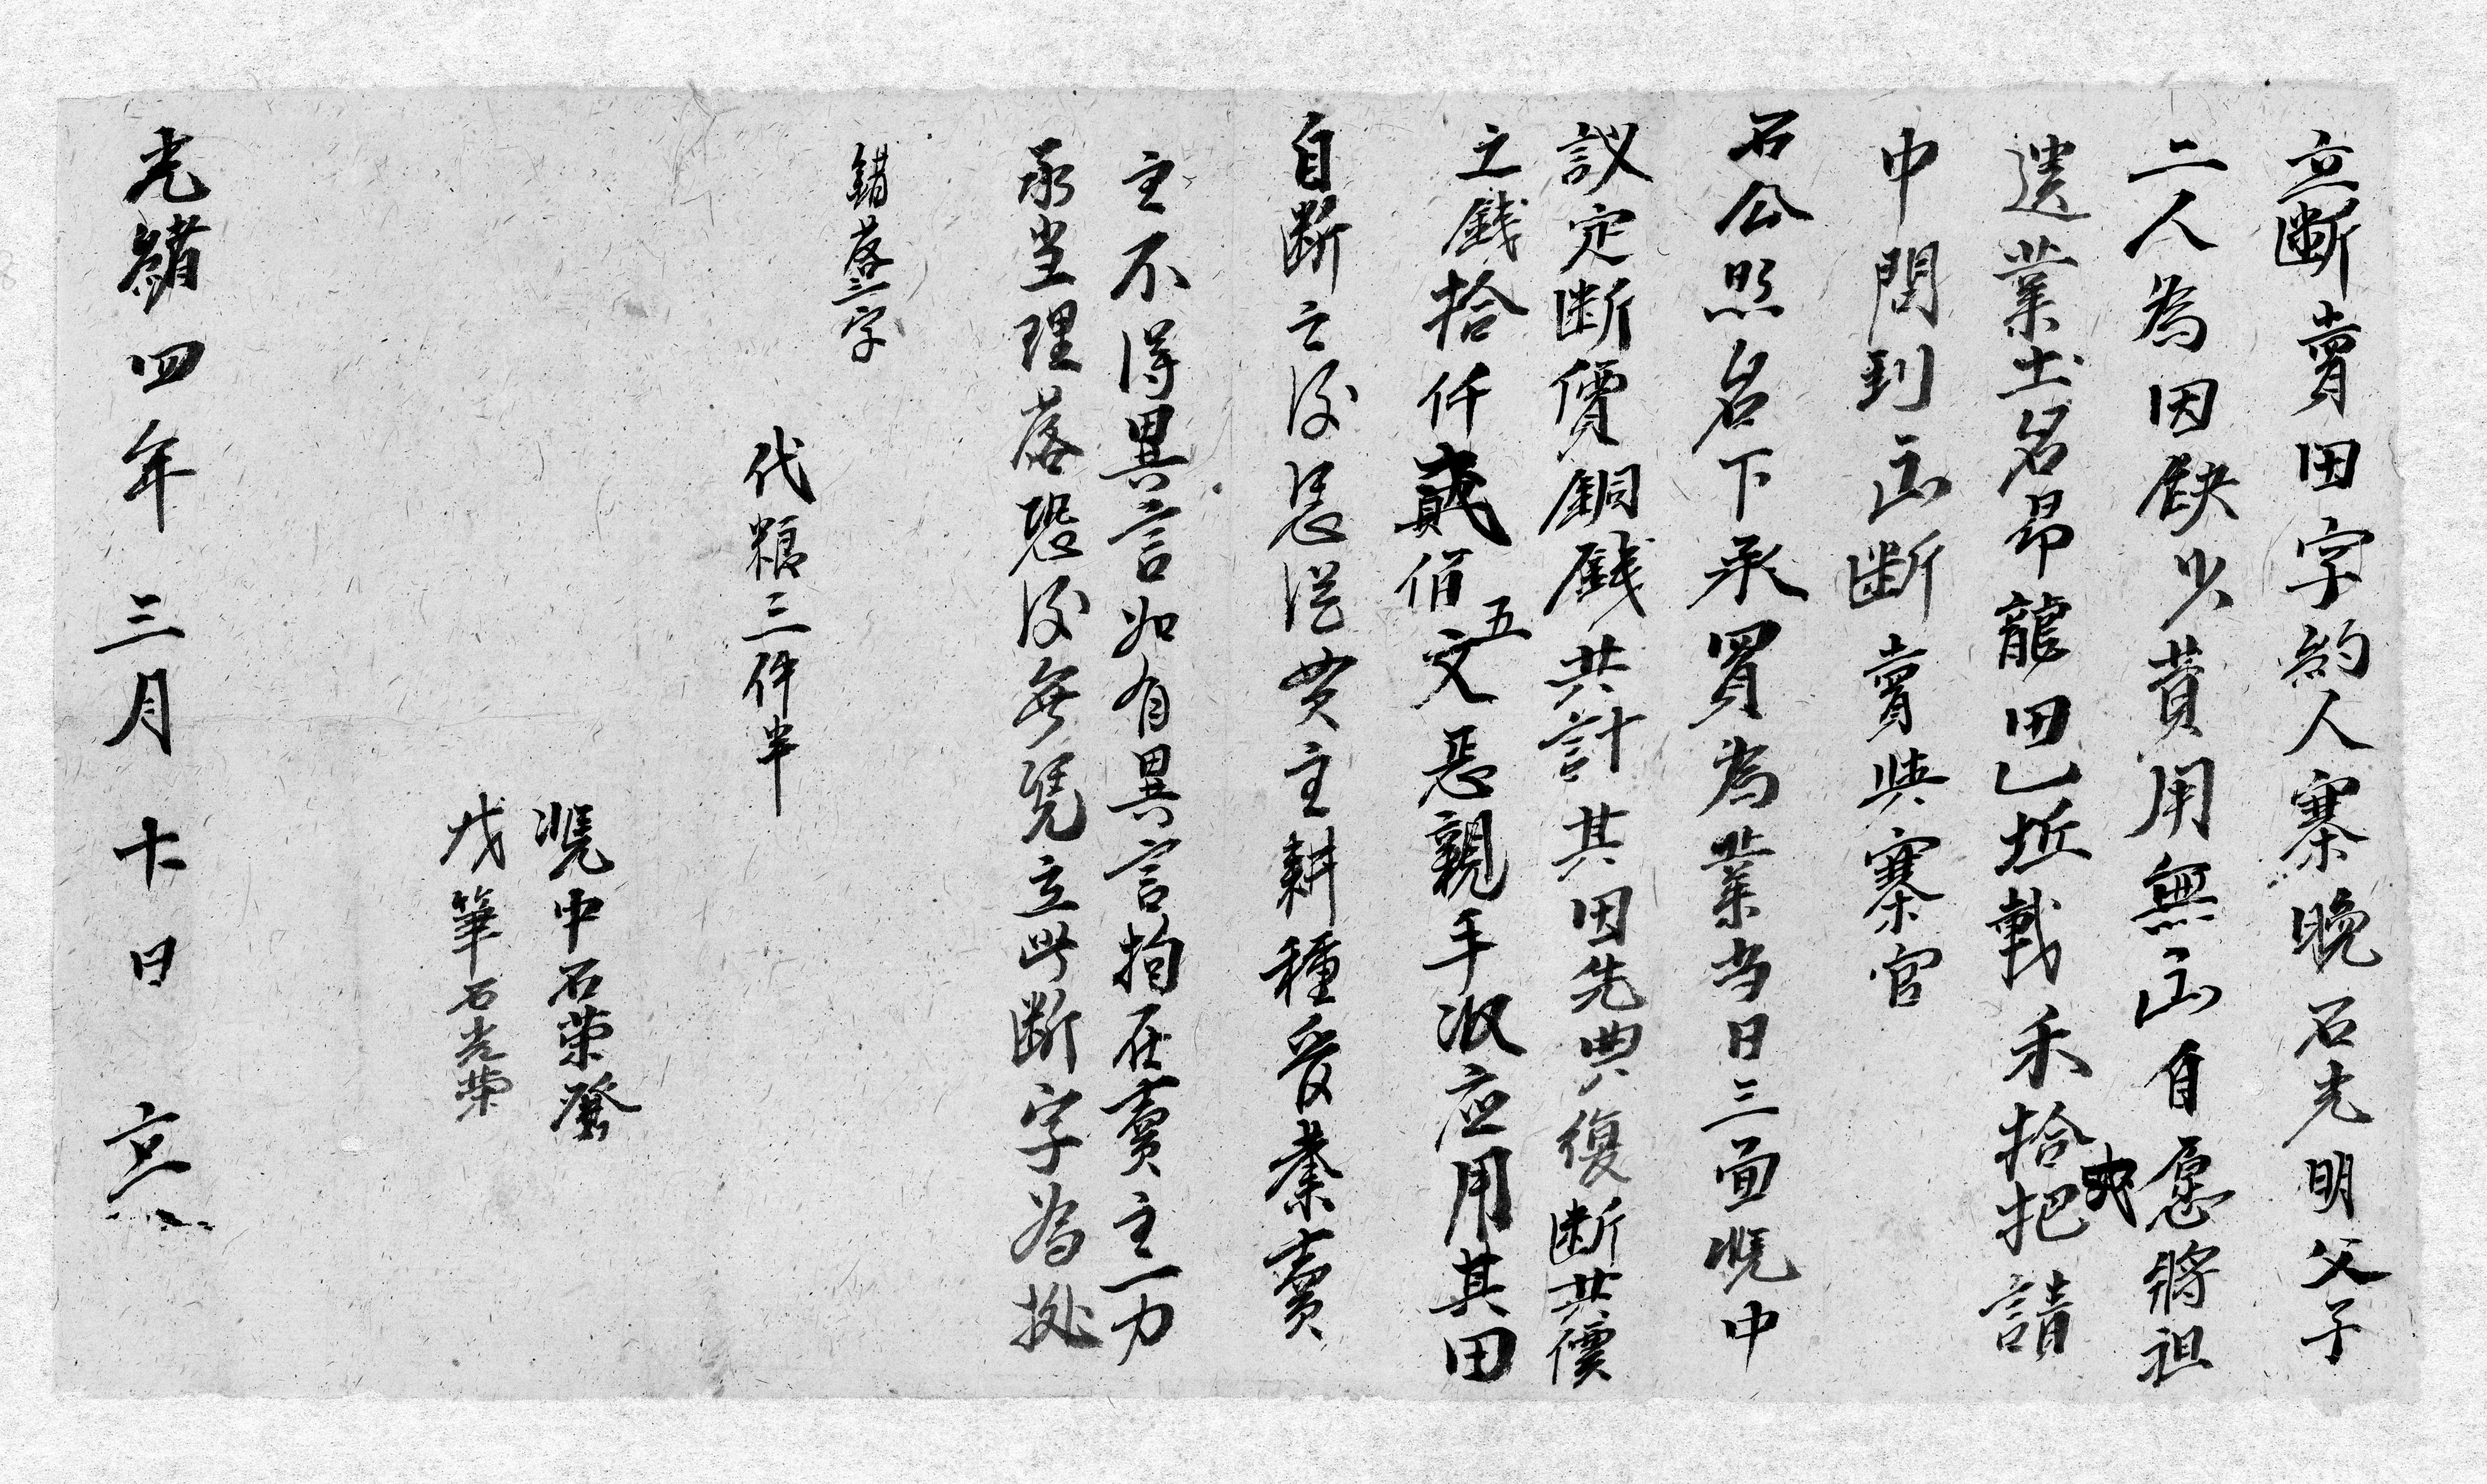 立断賣田字約人寨晚石光明父子
二人為因缺少費用無出自愿將祖
遺業土名昂龍田乙坵載禾拾把請
中問到出断賣與寨官
石公照名下承買為業当日三面凭中
議定断價銅錢共計其因先典復断共價
之錢拾仟貳佰五文悉親手收应用其田
自断之後悉從買主耕種受業賣
主不得異言如有異言拘在賣主一力
承当理落恐後無凭立此断字為据
錯落二字
代粮三件半
凭中石荣發
代筆石光荣
光緒四年三月十日立